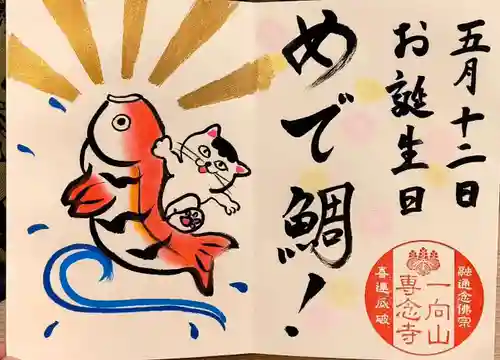 五月十二日
お誕生日
めで鯛!
融通念佛宗
一向山
専念寺
喜運咸破